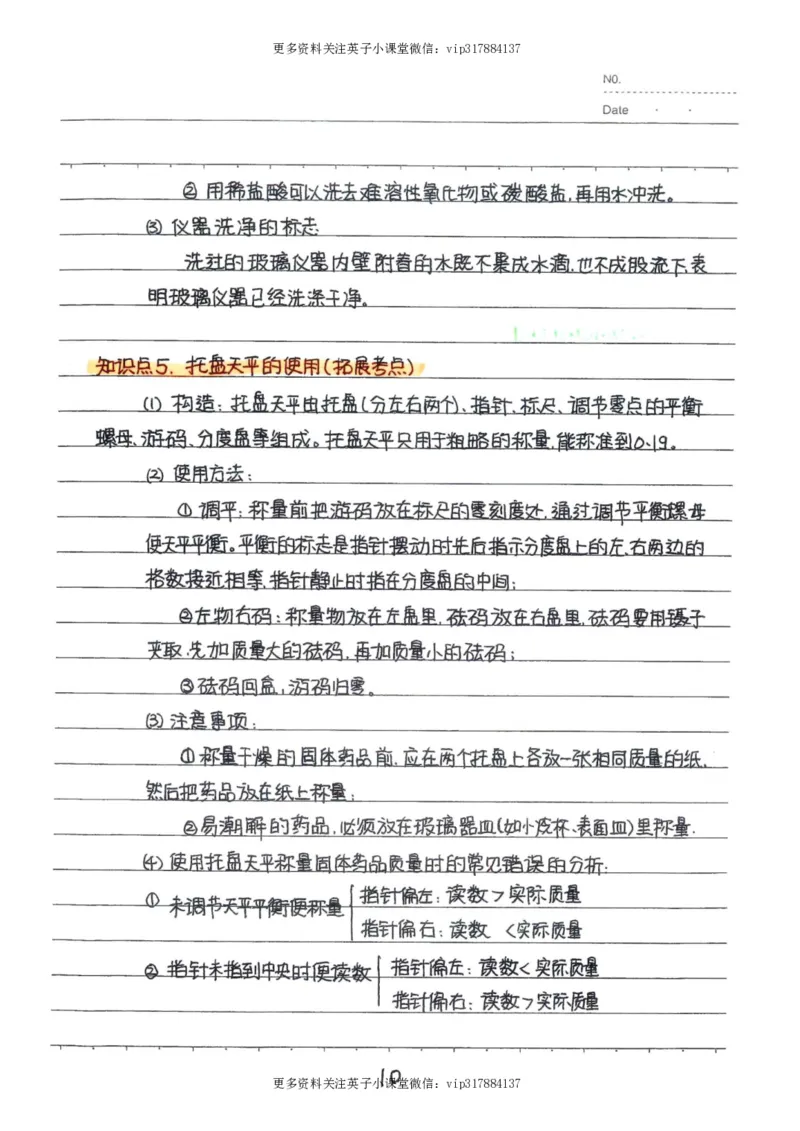 更多资料关注英子小课堂微信：vip317884137
NO.
Date
② 用稀盐酸可以洗去难溶性氧化物或碳酸盐,再用水冲洗。
(3) 仪器洗净的标志
洗过的玻璃仪器内壁附着的水既不聚成水滴,也不成股流下,表
明玻璃仪器已经洗涤干净。
知识点5. 托盘天平的使用(拓展考点)
(1) 构造：托盘天平由托盘(分左右两个)、指针、标尺、调节零点的平衡
螺母、游码、分度盘等组成。托盘天平只用于粗略的称量,能称准到0.1g。
(2) 使用方法：
① 调平：称量前把游码放在标尺的零刻度处,通过调节平衡螺母
使天平平衡。平衡的标志是指针摆动时先后指示分度盘上的左、右两边的
格数接近相等,指针静止时指在分度盘的中间；
②左物右码：称量物放在左盘里,砝码放在右盘里,砝码要用镊子
夹取.先加质量大的砝码,再加质量小的砝码；
③砝码回盒,游码归零。
(3) 注意事项：
①称量干燥的固体药品前,应在两个托盘上各放一张相同质量的纸,
然后把药品放在纸上称量；
②易潮解的药品,必须放在玻璃器皿(如小烧杯、表面皿)里称量.
(4) 使用托盘天平称量固体药品质量时的常见错误的分析：
① 未调节天平平衡便称量 指针偏左：读数＞实际质量
指针偏右：读数 ＜实际质量
② 指针未指到中央时便读数 指针偏左：读数＜实际质量
指针偏右：读数＞实际质量
10
更多资料关注英子小课堂微信：vip317884137